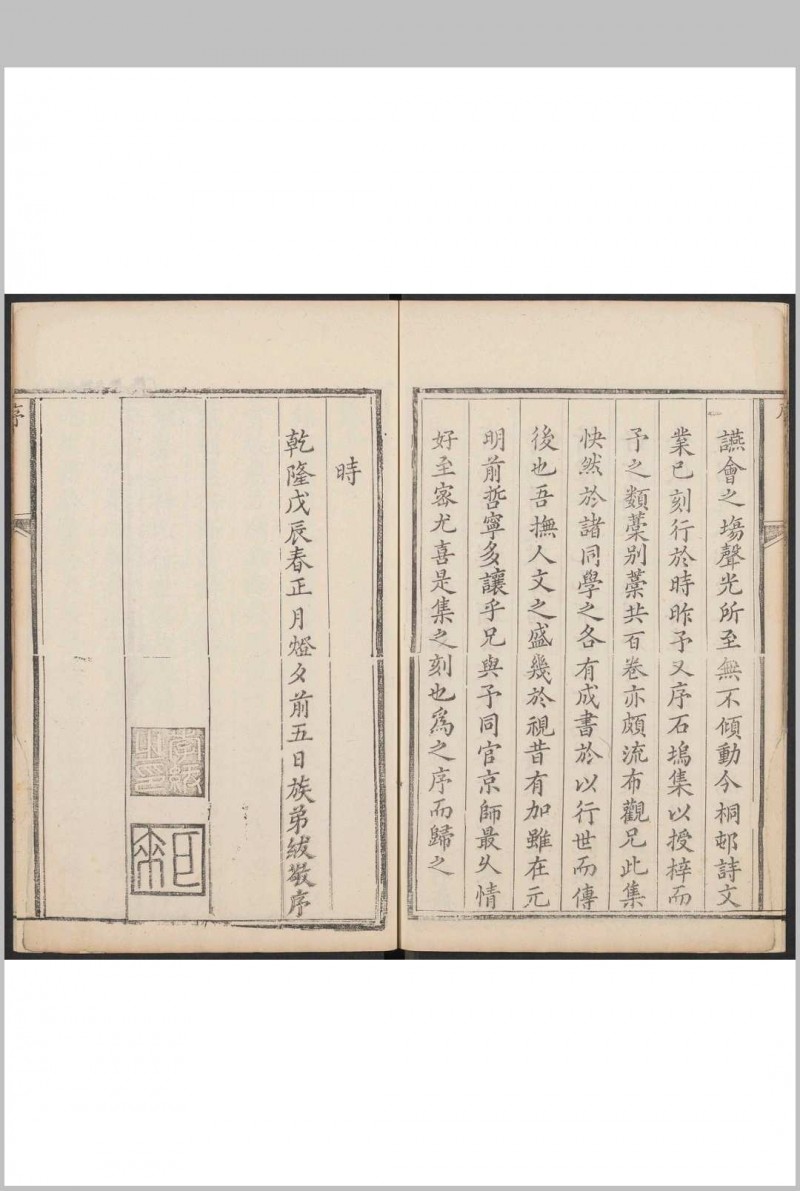 讌會之塲聲光所至無不傾動今桐邨詩文
業已刻行於時昨予又序石塢集以授梓而
予之類藁别藁共百卷亦頗流布觀兄此集
快然於諸同學之各有成書於以行世而傳
後也吾撫人文之盛幾於視昔有加雖在元
明前哲寧多讓乎兄與予同官京師最久情
好至密尤喜是集之刻也爲之序而歸之
時
乾隆戊辰春正月燈夕前五日族弟紱敬序
序